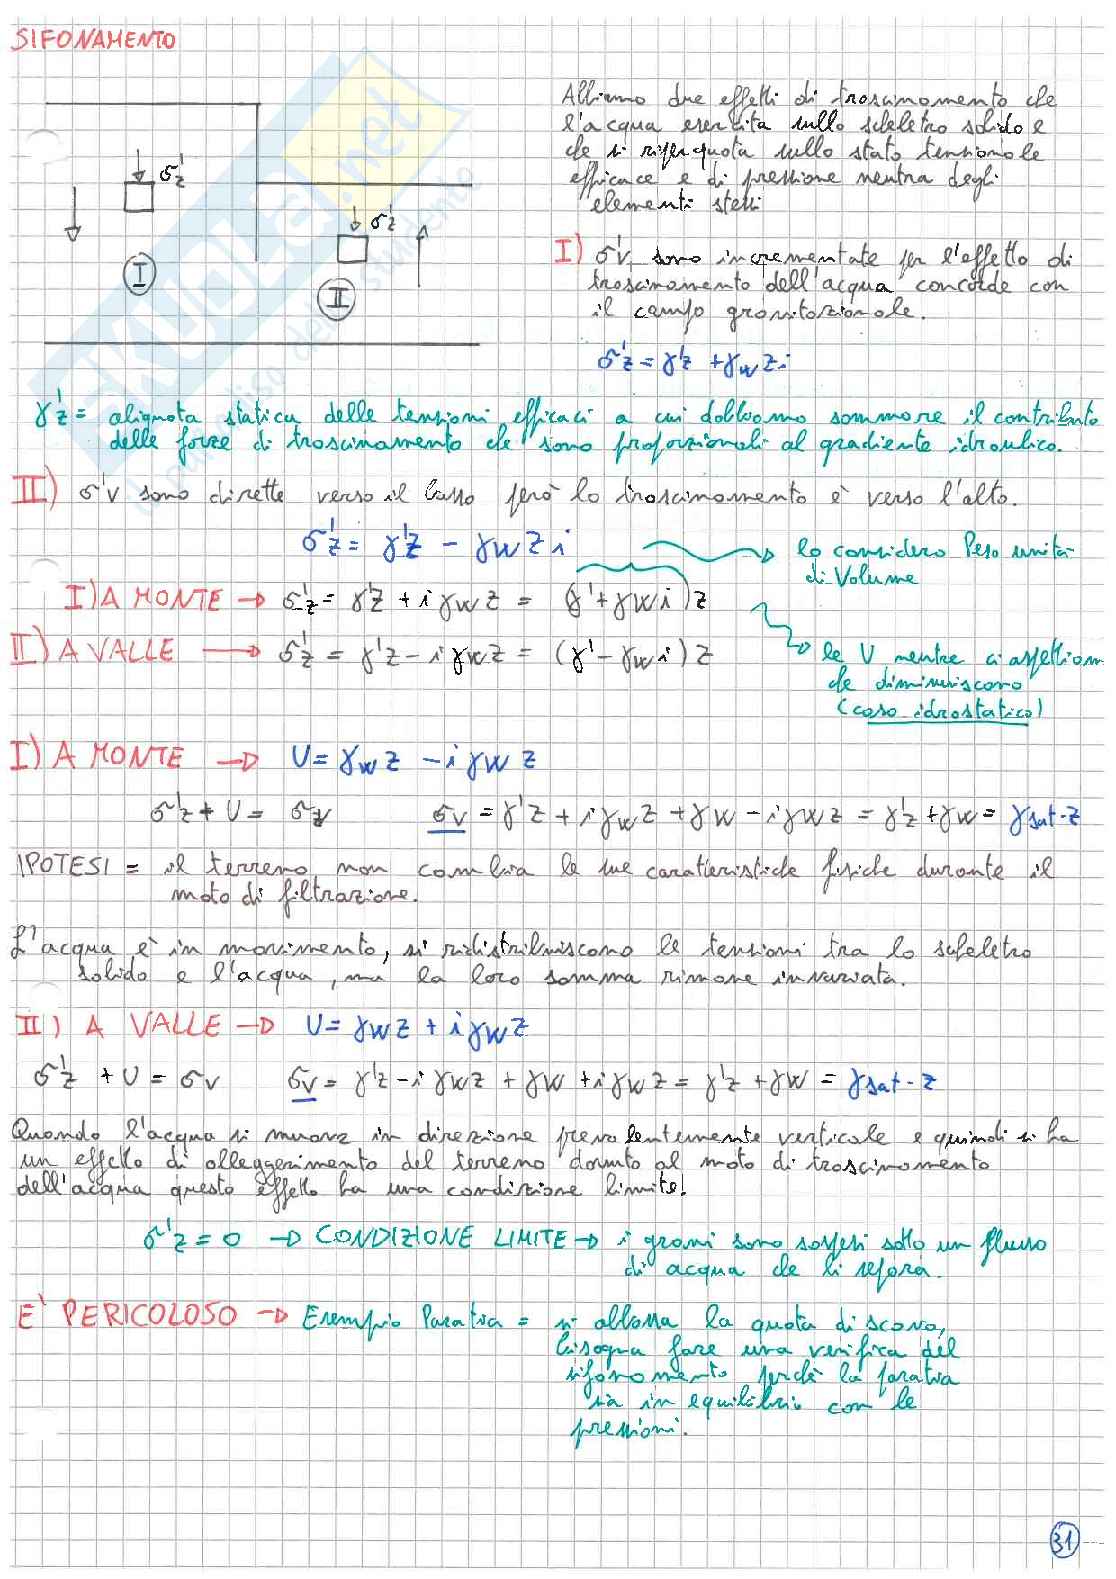 SIFONAMENTO
Abbiamo due effetti di trascinamento che
l'acqua esercita sullo scheletro solido e
che si ripercuota sullo stato tensionale
efficace e di pressione neutra degli
elementi stessi
σ'z
σ'z
I
II
I) σ'v sono incrementate per l'effetto di
trascinamento dell'acqua concorde con
il campo gravitazionale.
σ'z = γ'z + γw z i
γ'z = aliquota statica delle tensioni efficaci a cui dobbiamo sommare il contributo
delle forze di trascinamento che sono proporzionali al gradiente idraulico.
II) σ'v sono dirette verso il basso però lo trascinamento è verso l'alto.
σ'z = γ'z - γw z i
lo considero Peso unità
di Volume
I) A MONTE → σ'z = γ'z + i γw z = (γ' + γw i) z
II) A VALLE → σ'z = γ'z - i γw z = (γ' - γw i) z
le U mentre ci aspettiam
che diminuiscano
(caso idrostatico)
I) A MONTE → U = γw z - i γw z
σ'z + U = σv σv = γ'z + i γw z + γw - i γw z = γ'z + γw = γsat · z
IPOTESI = il terreno non cambia le sue caratteristiche fisiche durante il
moto di filtrazione.
L'acqua è in movimento, si ridistribuiscono le tensioni tra lo scheletro
solido e l'acqua, ma la loro somma rimane invariata.
II) A VALLE → U = γw z + i γw z
σ'z + U = σv σv = γ'z - i γw z + γw + i γw z = γ'z + γw = γsat · z
Quando l'acqua si muove in direzione prevalentemente verticale e quindi si ha
un effetto di alleggerimento del terreno dovuto al moto di trascinamento
dell'acqua questo effetto ha una condizione limite.
σ'z = 0 → CONDIZIONE LIMITE → i grani sono sospesi sotto un flusso
di acqua che li separa.
E' PERICOLOSO → Esempio Paratia = si abbassa la quota di scavo,
bisogna fare una verifica del
sifonamento perchè la paratia
sia in equilibrio con le
pressioni.
31